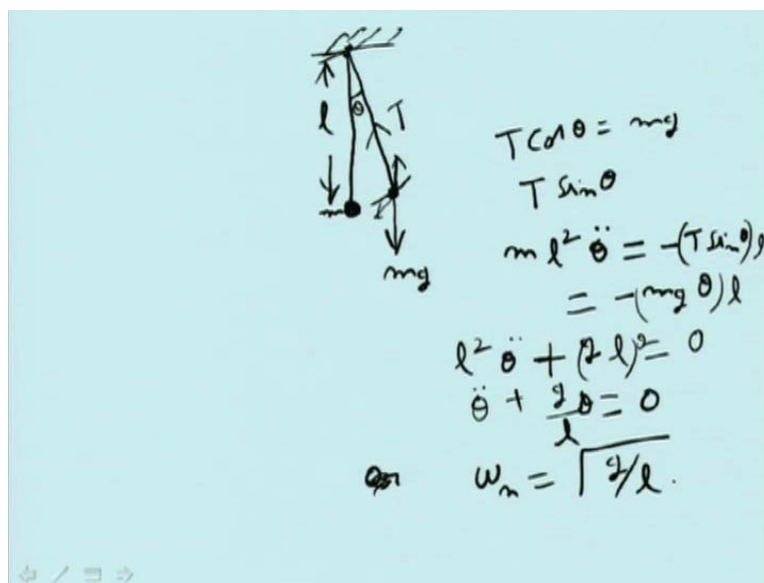 l
θ
T
m
mg
T Cosθ = mg
T Sinθ
m l² θ̈ = -(T Sinθ) l
= -(mg θ) l
l² θ̈ + (g l)θ = 0
θ̈ + g/l θ = 0
ω_n = √g/l.